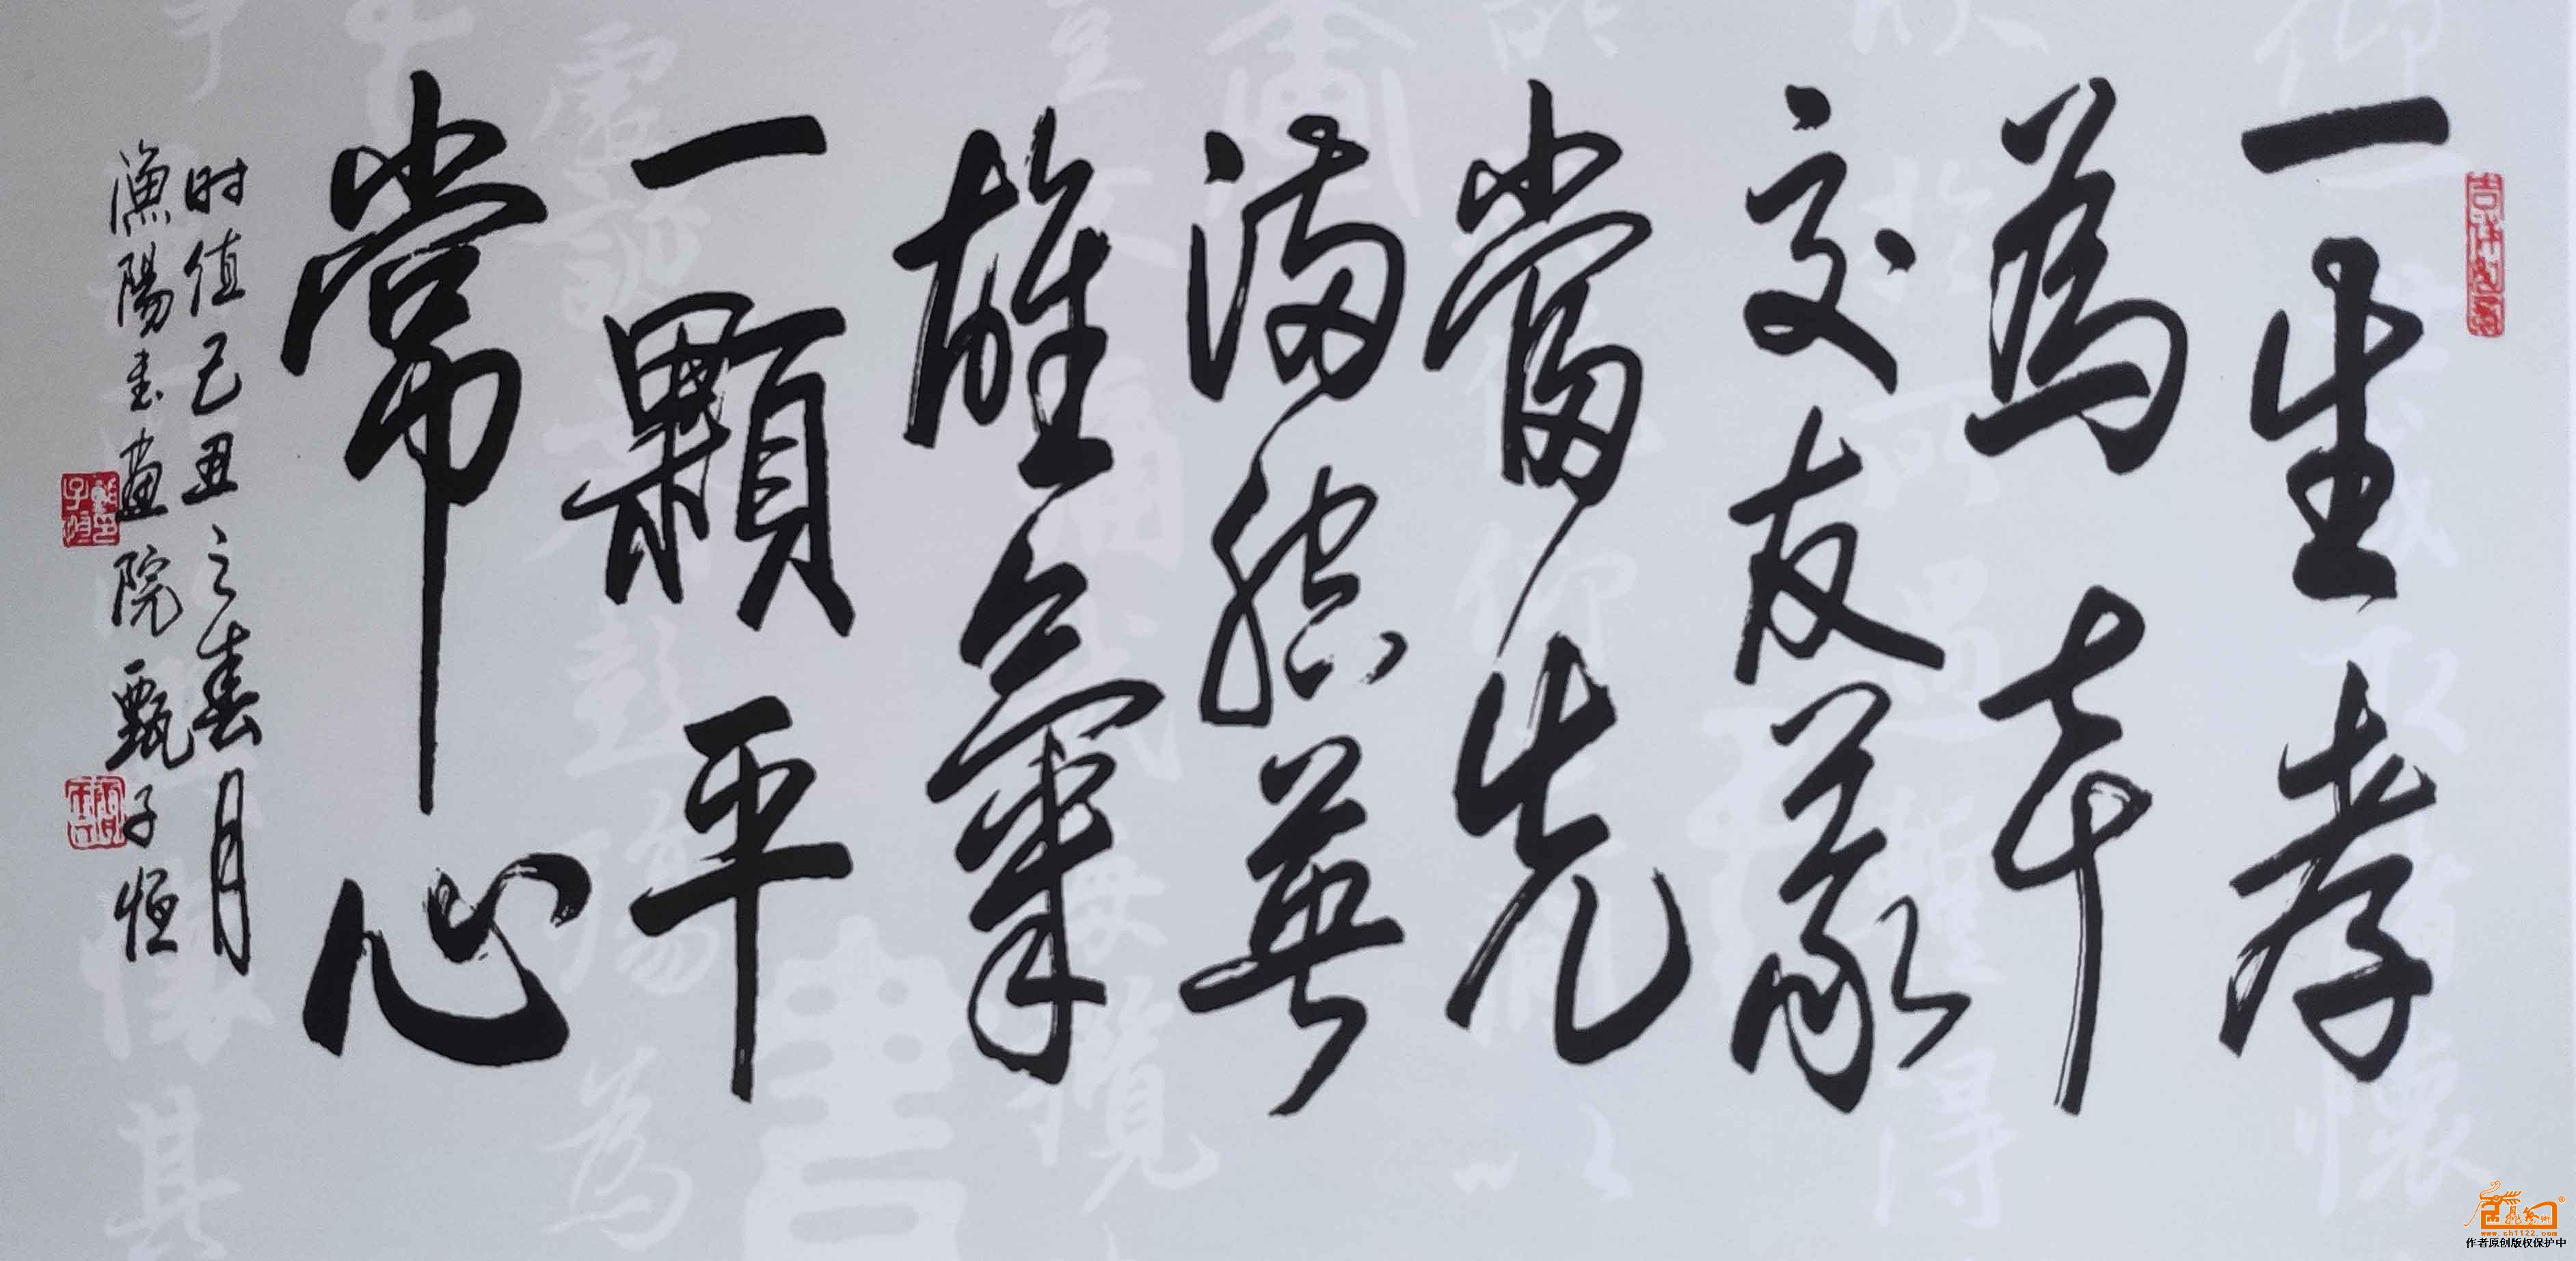 一生孝
為本
交友義
當先
滿腔英
雄氣
一顆平
常心
时值己丑之春月
漁陽书画院甄子恒
www.sh1122.com
作者原创版权保护中